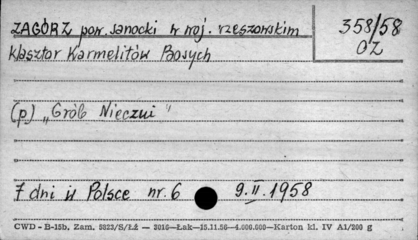 ZAGÓRZ pow. sanocki w woj. rzeszowskim
358/58
OZ
klasztor Karmelitów Bosych
(p) „Grób Nieczui"
7 dni w Polsce nr. 6 9.II.1958
CWD - B-15b. Zam. 5823/S/ŁŹ — 3016—Łak—15.11.56—4.000.000—Karton kl. IV A1/200 g